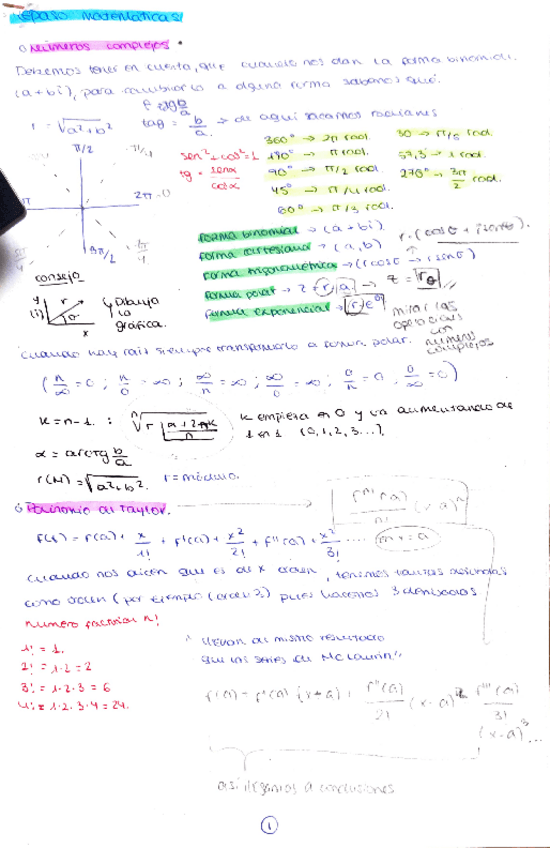 Repaso matemáticas
○ Números complejos •
Debemos tener en cuenta, que cuando nos dan la forma binomica
(a+bi), para cambiarlo a alguna forma sabemos que:
r = √a²+b²
tag = b/a → de aquí sacamos radianes
sen²+cos²=1
tg = senx/cosx
360° → 2π rad.
180° → π rad.
90° → π/2 rad.
45° → π/4 rad.
60° → π/3 rad.
30 → π/6 rad.
57,3° → 1 rad
270° → 3π/2 rad.
π/2
π/4
2π - 0
3π/2
forma binomial → (a+bi).
forma cartesiana → (a,b)
r·(cosθ + isenθ).
forma trigonométrica → (r cosθ → i senθ)
forma polar → z = r|a → z = rθ
forma exponencial → r·e^θ
mirar las operaciones con números complejos
consejo
y (i) r θ x
Dibujo la gráfica.
Cuando hay raíz siempre transformarlo a forma polar.
(n/∞ = 0; n/0 = ∞; ∞/n = ∞; ∞/0 = ∞; 0/n = 0, 0/∞ = 0)
K = n-1. : ⁿ√r |α+2πK/n
K empieza en 0 y va aumentando de
1 en 1 (0,1,2,3...).
α = arctg b/a
r(N) = √a²+b². r = módulo.
○ Polinomio de Taylor.
f'''(a)/n! (x-a)ⁿ
f(x) = f(a) + x/1! + f'(a) + x²/2! + f''(a) + x³/3! .... en x = a
Cuando nos dicen que es de x orden, tenemos tantas derivadas
como orden (por ejemplo (orden 2) pues hacemos 3 derivadas
numero factorial n!
1! = 1.
2! = 1·2 = 2
3! = 1·2·3 = 6
4! = 1·2·3·4 = 24.
llevan al mismo resultado
que las series de McLaurin
f(a) - f'(a) (x+a) + f''(a)/2! (x-a)² f'''(a)/3!
(x-a)³...
así llegamos a conclusiones
1